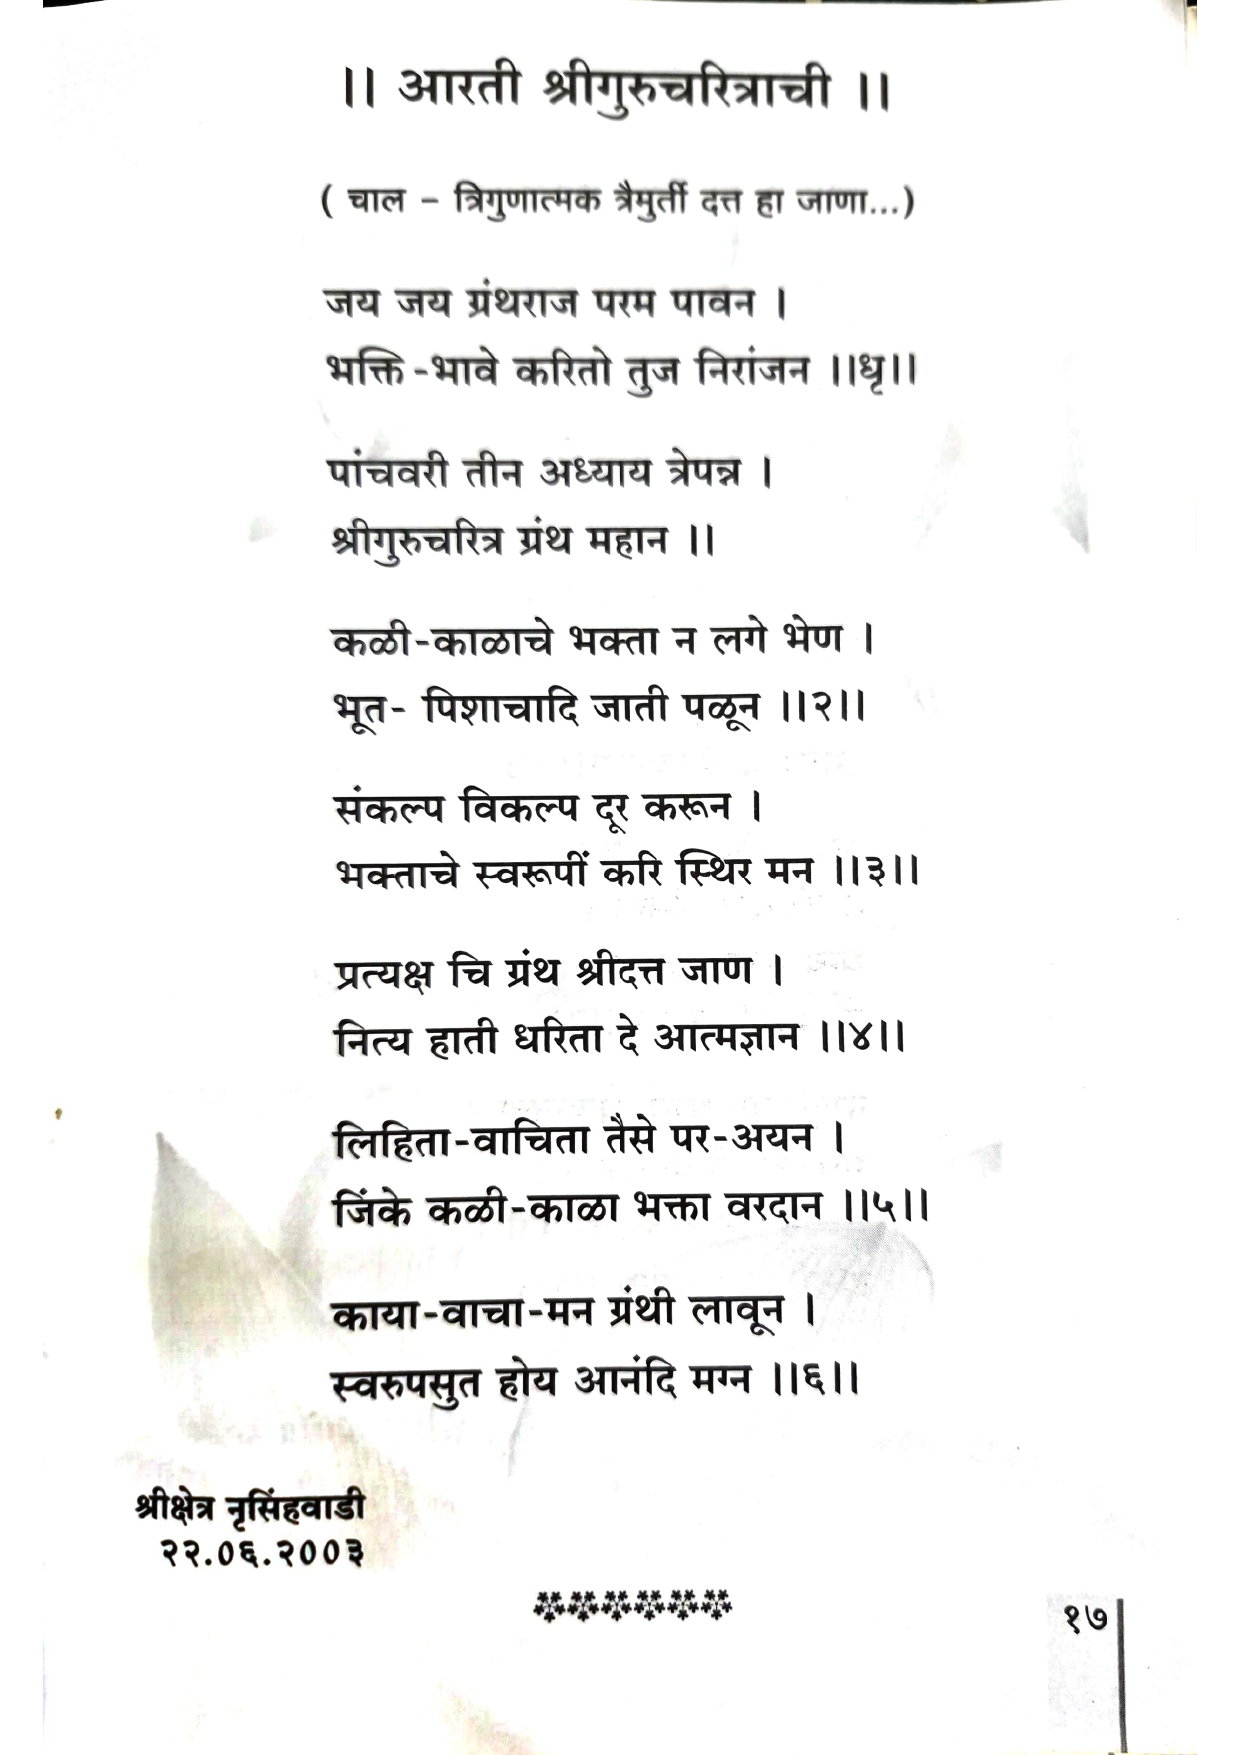 ।। आरती श्रीगुरुचरित्राची ।।
( चाल – त्रिगुणात्मक त्रैमुर्ती दत्त हा जाणा...)
जय जय ग्रंथराज परम पावन ।
भक्ति -भावे करितो तुज निरांजन ।।धृ।।
पांचवरी तीन अध्याय त्रेपन्न ।
श्रीगुरुचरित्र ग्रंथ महान ।।
कळी-काळाचे भक्ता न लगे भेण ।
भूत- पिशाचादि जाती पळून ।।२।।
संकल्प विकल्प दूर करून ।
भक्ताचे स्वरूपीं करि स्थिर मन ।।३।।
प्रत्यक्ष चि ग्रंथ श्रीदत्त जाण ।
नित्य हाती धरिता दे आत्मज्ञान ।।४।।
लिहिता-वाचिता तैसे पर-अयन ।
जिंके कळी-काळा भक्ता वरदान ।।५।।
काया-वाचा-मन ग्रंथी लावून ।
स्वरुपसुत होय आनंदि मग्न ।।६।।
श्रीक्षेत्र नृसिंहवाडी
२२.०६.२००३
१७